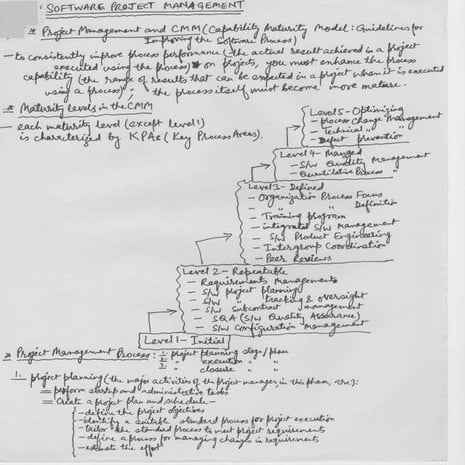 SOFTWARE PROJECT MANAGEMENT
* Project Management and CMM (Capability Maturity Model: Guidelines for
Improving the Software Process)
- to consistently improve process performance (the actual result achieved in a project
executed using the process) on projects, you must enhance the process
capability (the range of results that can be expected in a project when it is executed
using a process); the process itself must become more mature.
* Maturity levels in the CMM
- each maturity level (except level 1)
is characterized by KPAs (Key Process Areas).
Level 5 - Optimizing
- process Change Management
- Technical " "
- Defect prevention
Level 4 - Managed
- S/w Quality Management
- Quantitative Process "
Level 3 - Defined
- Organization Process Focus
- " " Definition
- Training program
- integrated S/w Management
- S/w Product Engineering
- Intergroup Coordination
- Peer Reviews
Level 2 - Repeatable
- Requirements Managements
- S/w project planning
- S/w " tracking & oversight
- S/w subcontract management
- SQA (S/w Quality Assurance)
- S/w Configuration Management
Level 1 - Initial
* Project Management Process: 1. project planning stage/phase
2. " execution " "
3. " closure " "
1. project planning (the major activities of the project manager, in this phase, are):
= perform startup and administrative tasks
= Create a project plan and schedule -
- define the project objectives
- identify a suitable standard process for project execution
- tailor the standard process to meet project requirements
- define a process for managing changes in requirements
- estimate the effort